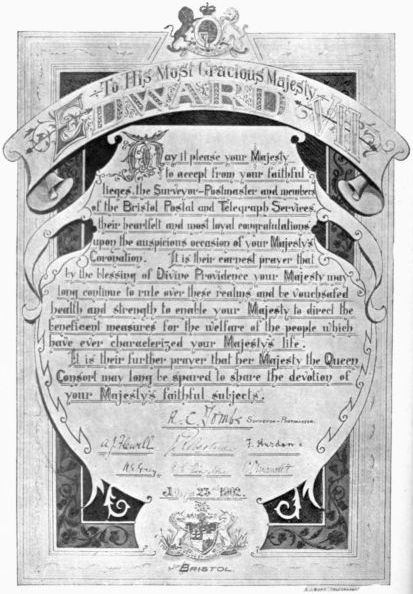 To His Most Gracious Majesty
EDWARD VII
May it please your Majesty
to accept from your faithful
lieges, the Surveyor-Postmaster and members
of the Bristol Postal and Telegraph Services,
their heartfelt and most loyal congratulations
upon the auspicious occasion of your Majesty's
Coronation. It is their earnest prayer that
by the blessing of Divine Providence your Majesty may
long continue to rule over these realms and be vouchsafed
health and strength to enable your Majesty to direct the
beneficent measures for the welfare of the people which
have ever characterized your Majesty's life.
It is their further prayer that her Majesty the Queen
Consort may long be spared to share the devotion of
your Majesty's faithful subjects.
R. C. Tombs Surveyor-Postmaster.
23rd 1902.
BRISTOL